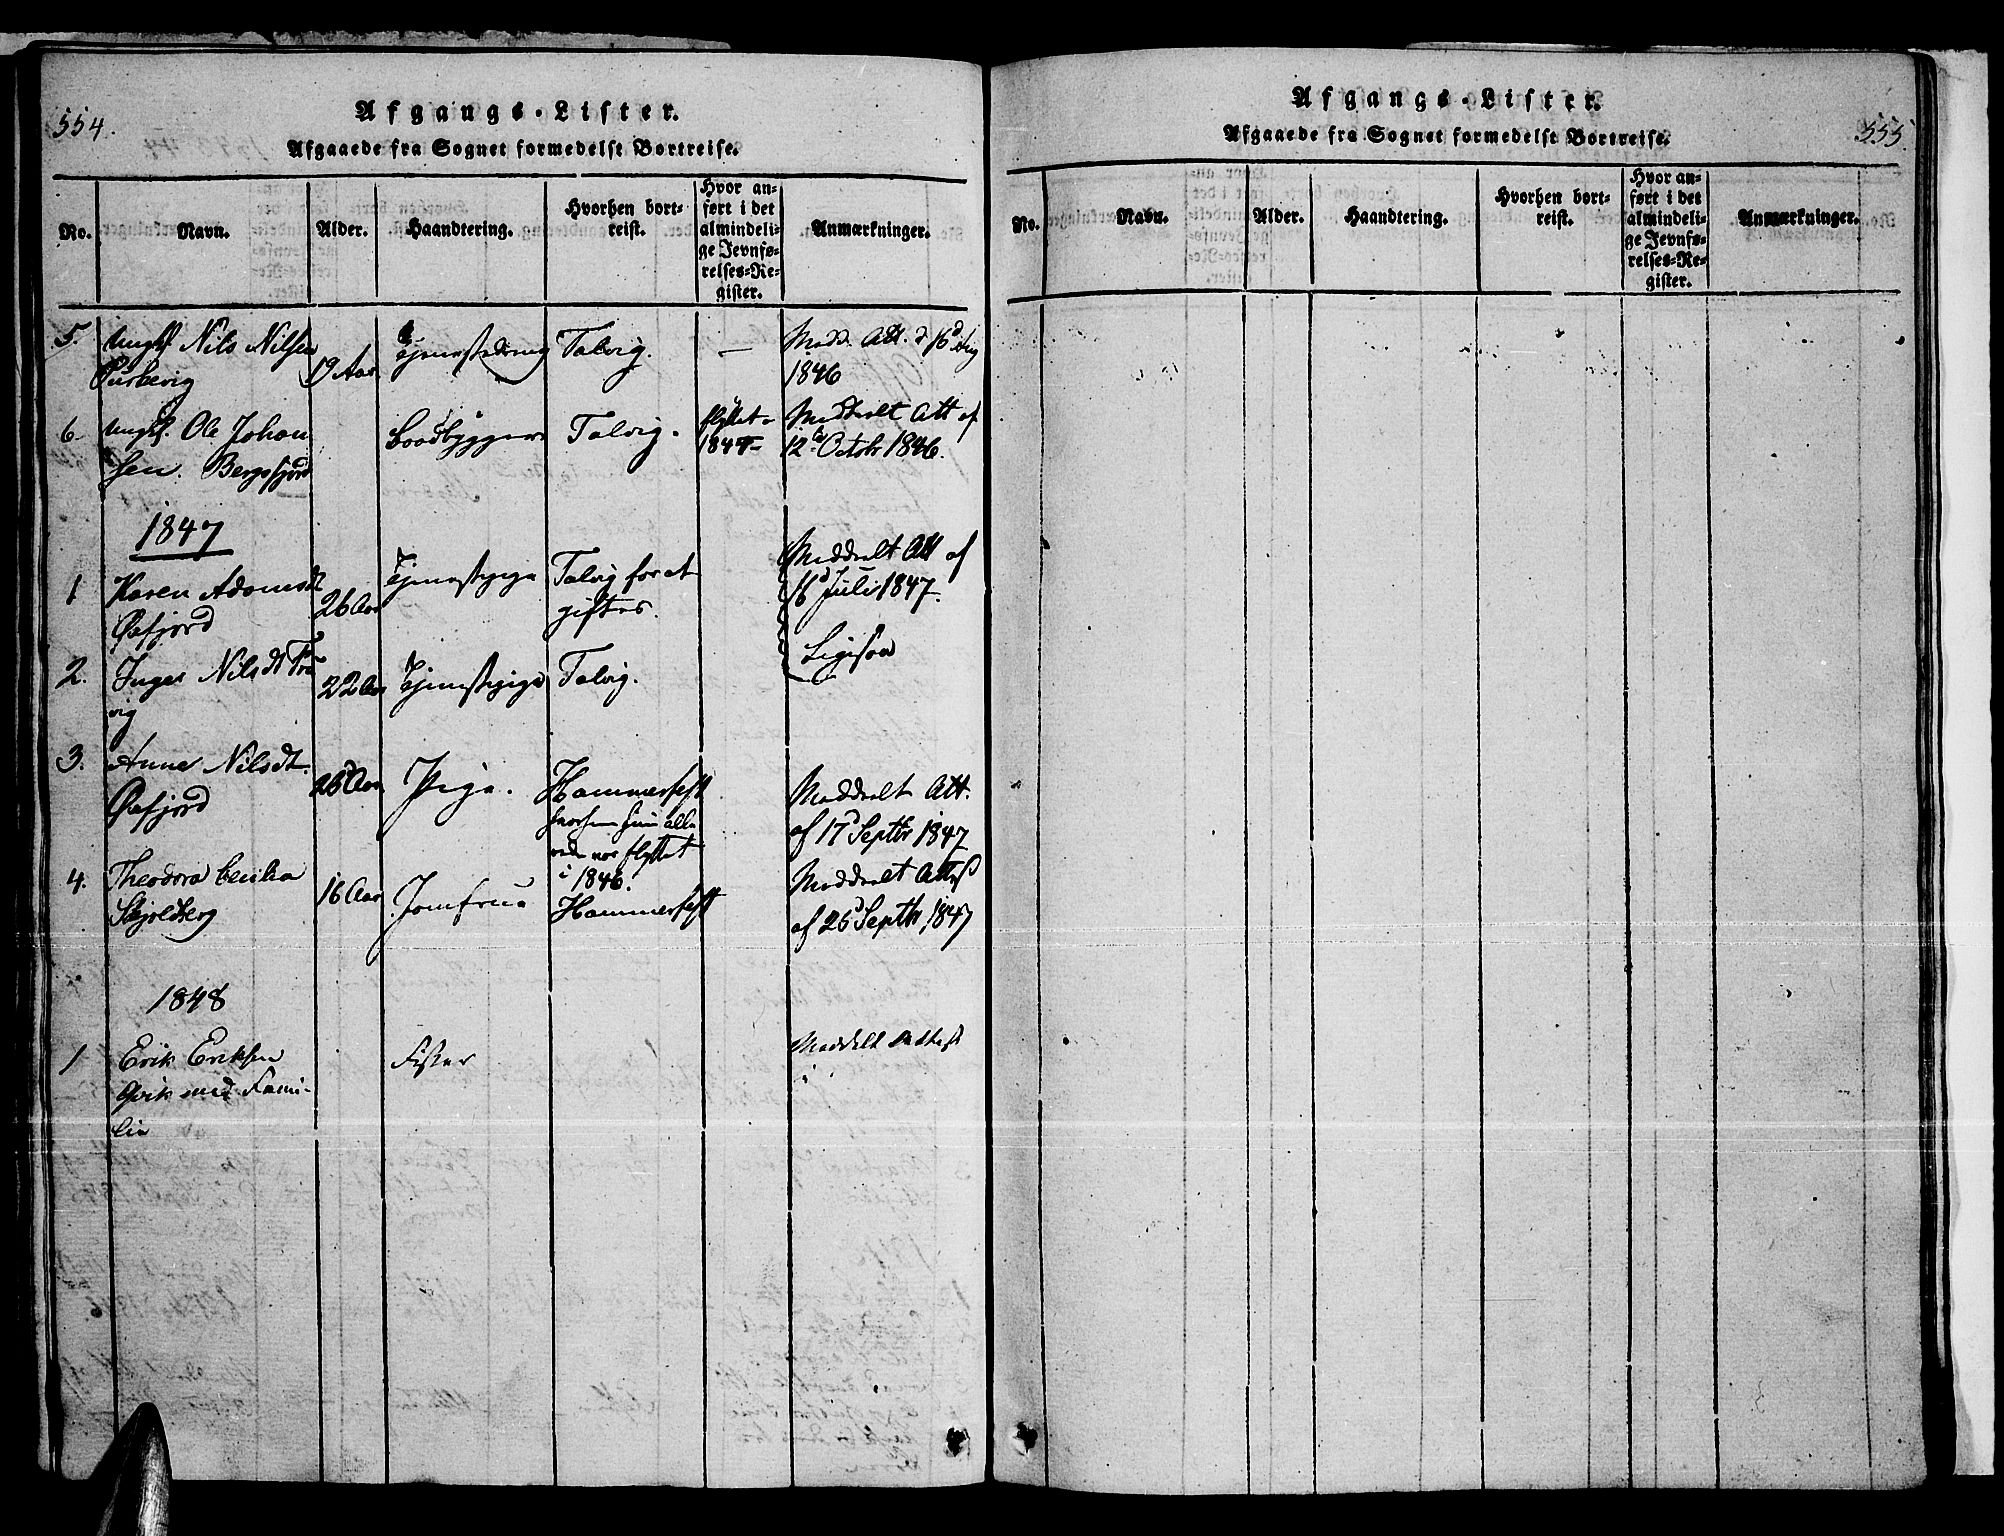 554.
Afgangs-Lister.
Afgaaede fra Sognet formedelst Bortreise.
No.
Navn.
Alder.
Haandtering.
Hvorhen bort-
reist.
Hvor an-
ført i det
almindeli-
ge Jevnfø-
relses-Re-
gister.
Anmærkninger.
5. Ungk Nils Nilsen
19 Aar
Tjenestedreng
Talvig.
—
Medd. Att. d 16d Aug
1846
6 Ungk. Ole Johan
sen. Bergsfjord
Baadbygger
Talvig.
flyttet
1847
Meddeelt Att af
12te Octobr 1846.
1847
1 Karen Adamsdt
Øxfjord
26 Aar
Tjenestepige
Talvig for at
giftes.
Meddeelt Att af
16d Juli 1847.
2. Inger Nilsdt
vig
22 Aar
Tjenestepige
Talvig.
Ligesaa
3. Anne Nilsdt.
Øxfjord
Pige.
Hammerfest
hvorhen hun alle
rede var flyttet
i 1846.
Meddeelt Att.
af 17d Septbr 1847
4. Theodora
Skjoldberg
16 Aar
Jomfrue
Hammerfest
Meddeelt Attest
af 26d Septbr 1847
1848
1 Erik Eriksen
med Fami-
lie
Fisker
Meddelt Attest
Afgangs-Lister.
555.
Afgaaede fra Sognet formedelst Bortreise.
No.
Navn.
Alder.
Haandtering.
Hvorhen bort-
reist.
Hvor an-
ført i det
almindeli-
ge Jevnfø-
relses-Re-
gister.
Anmærkninger.